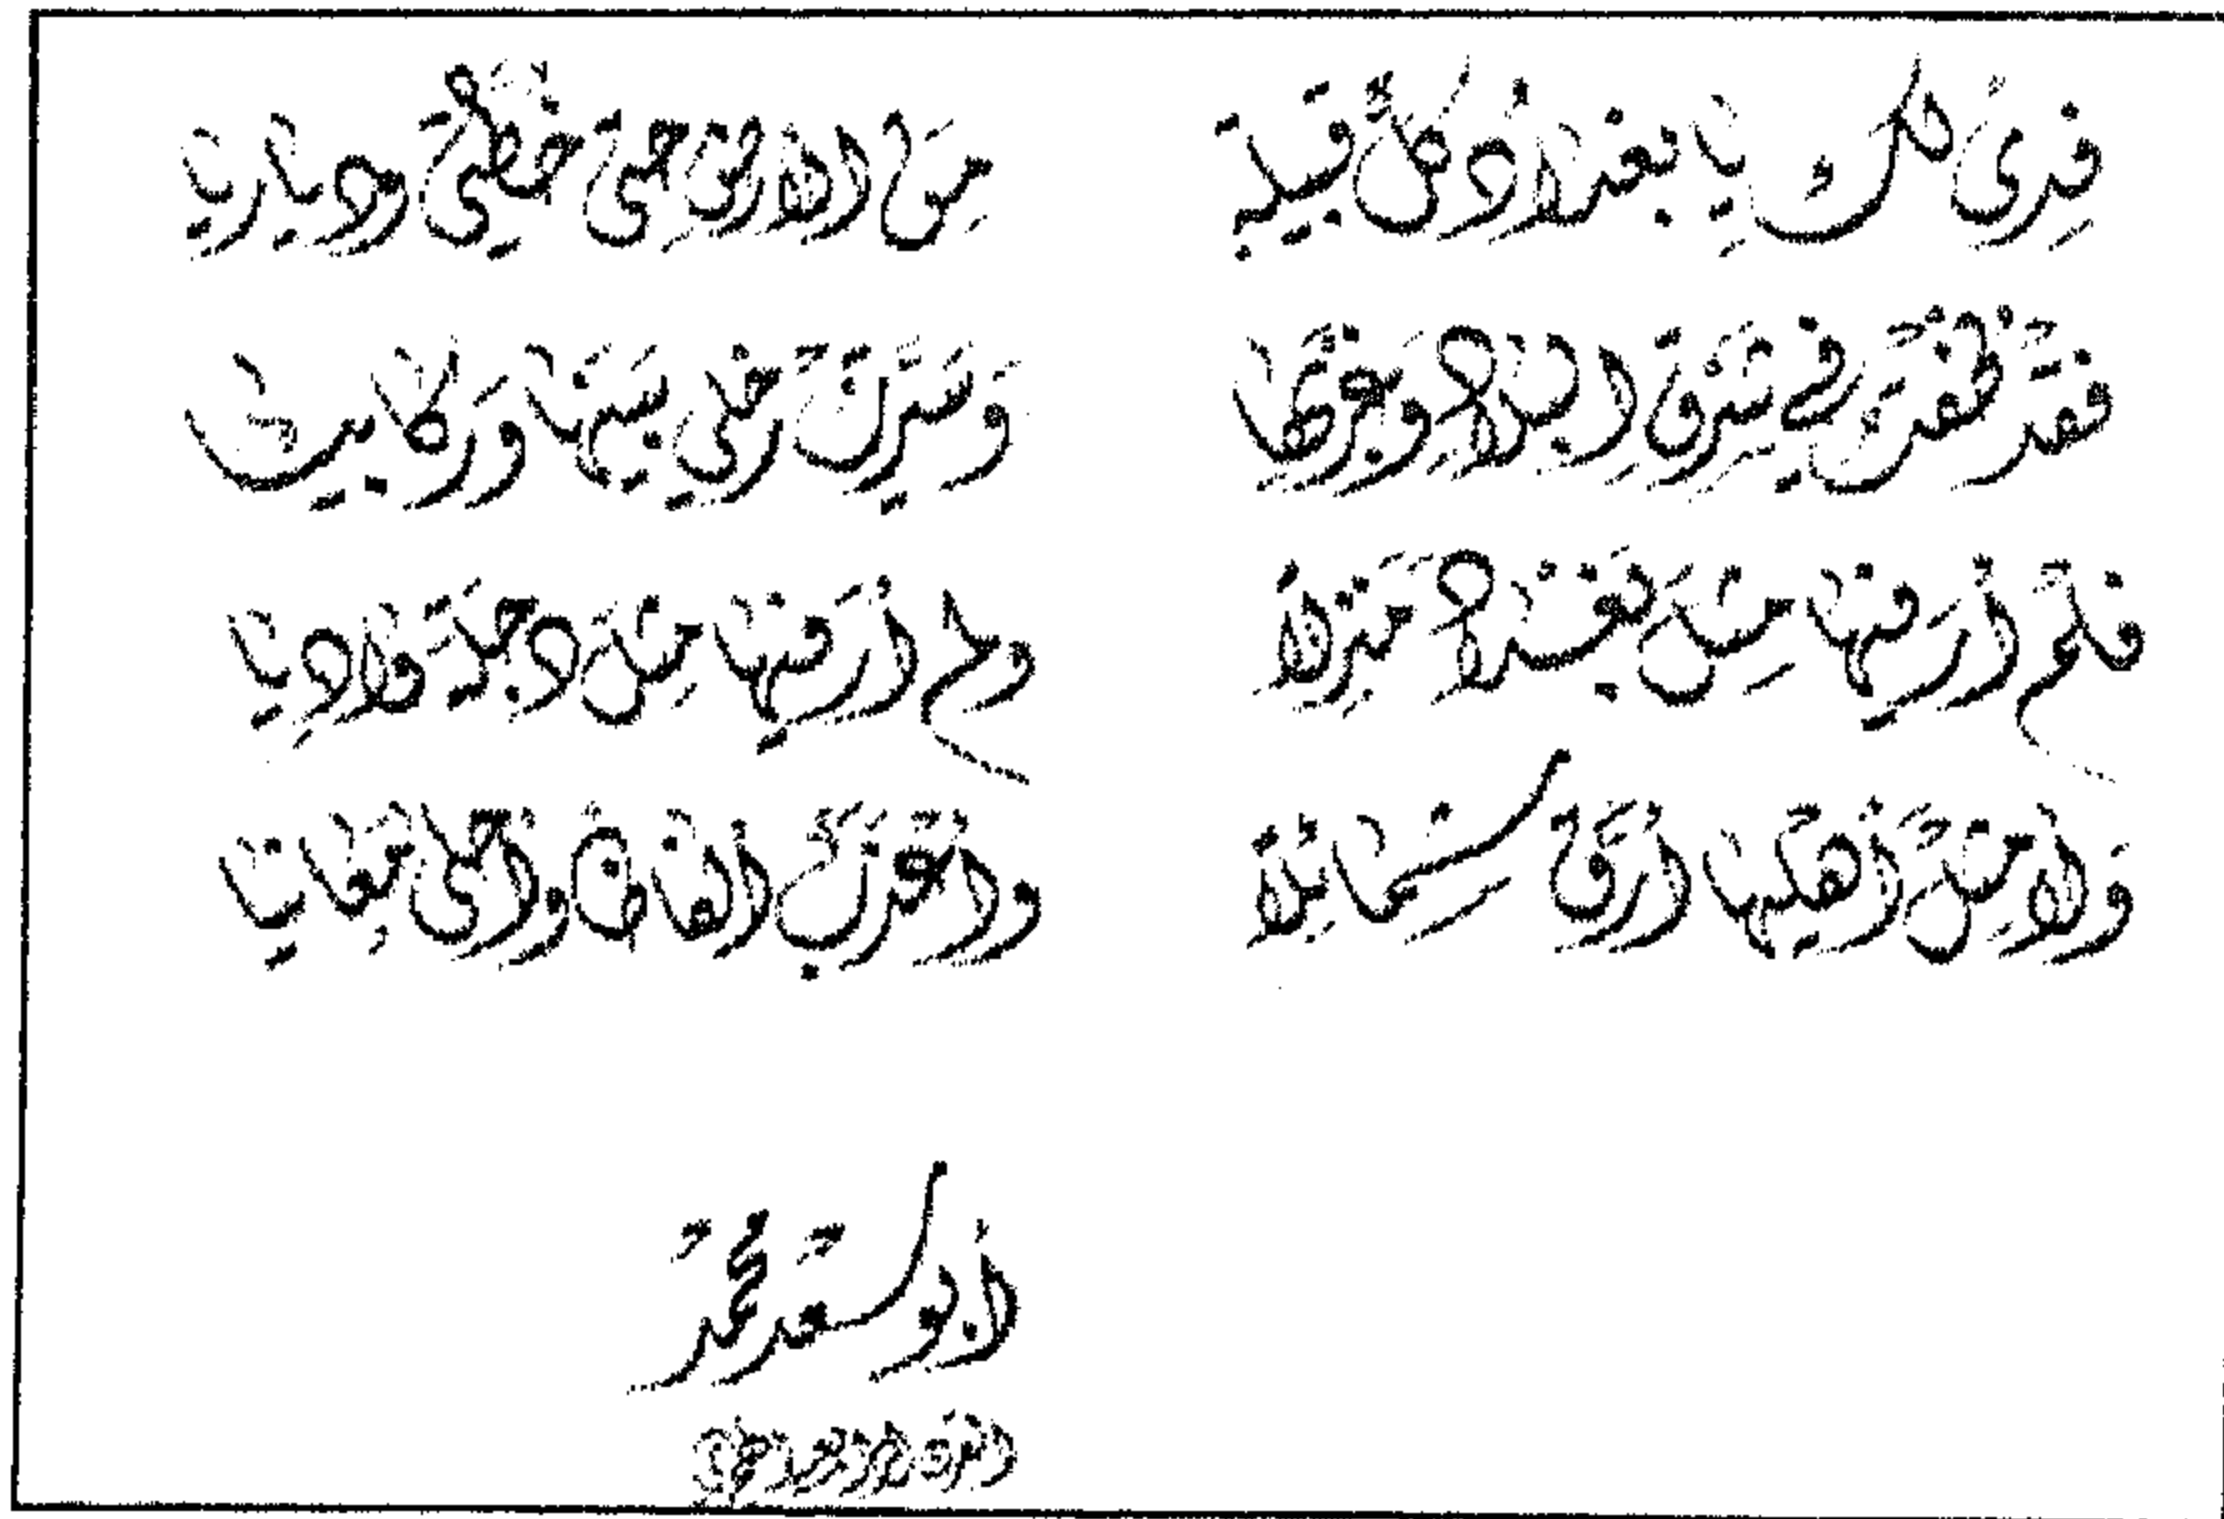 فِدىً لك يا بغداد كلُّ قبيلة من الأرض حتى خطتي ودياريا
فقد طفت في شرق البلاد وغربها وسيرت رحلي بينها وركابيا
فلم أر فيها مثل بغداد منزلاً ولم أر فيها مثل دجلة واديا
ولا مثل أهليها أرق شمائلاً وأعذب ألفاظاً وأحلى معانيا
أبو سعد محمد